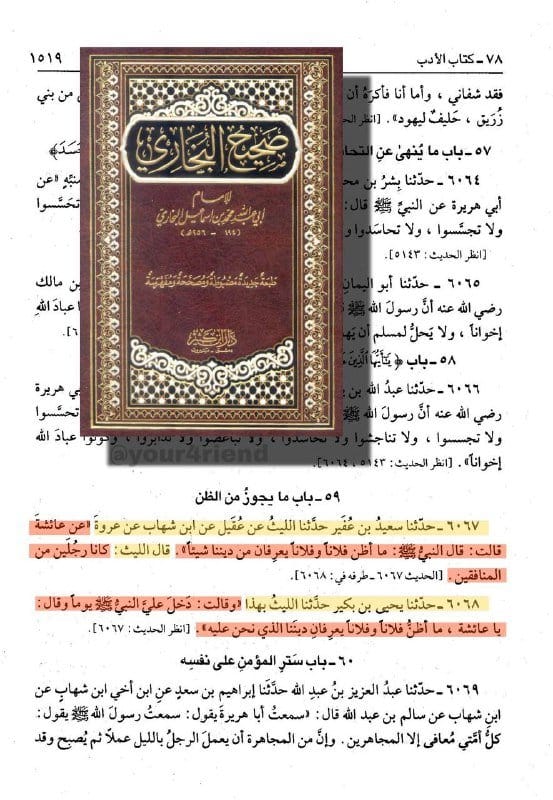 ٧٨ - كتاب الأدب
١٥١٩
فقد شفاني ، وأما أنا فأكرَهُ أن
من بني
زُرَيق ، حَليفٌ ليهود» .
٥٧ - باب ما يُنهىٰ عنِ
٦٠٦٤ - حدّثنا بِشرُ بن
منبِّهٍ «عن
أبي هريرة عن النبيِّ ﷺ قال:
تحَسَّسوا
ولا تجسَّسوا ، ولا تحاسَدوا
[انظر الحديث: ٥١٤٣] .
٦٠٦٥ - حدّثنا أبو اليمان
بن مالك
رضي الله عنه أنَّ رسولَ الله
عبادَ اللهِ
إخواناً ، ولا يَحلُّ لمسلم أن
٥٨ - باب
٦٠٦٦ - حدّثنا عبدُ الله بن
هريرة
رضي الله عنه أنَّ رسول الله
تحسَّسوا
ولا تجسسوا ، ولا تناجشوا ولا تحاسدوا ، ولا تباغضوا ولا تدابروا ، وكونوا عبادَ الله
إخواناً» . [انظر الحديث: ٥١٤٣ ، ٦٠٦٤] .
صحيح البخاري
للإمام
أبي عبد الله محمد بن إسماعيل البخاري
(١٩٤ - ٢٥٦ هـ)
طبعة جديدة مضبوطة ومصححة ومفهرسة
دار ابن كثير
دمشق - بيروت
@your4riend
٥٩ - باب ما يجوزُ من الظن
٦٠٦٧ - حدّثنا سعيدُ بن عُفَير حدَّثنا الليثُ عن عُقَيل عن ابن شهاب عن عروةَ «عن عائشةَ
قالت: قال النبيُّ ﷺ: ما أظن فلاناً وفلاناً يعرِفان من ديننا شيئاً» . قال الليث: كانا رجُلَين من
المنافقين . [الحديث ٦٠٦٧ - طرفه في: ٦٠٦٨] .
٦٠٦٨ - حدّثنا يحيى بن بكير حدَّثنا الليثُ بهذا «وقالت: دَخلَ عليَّ النبيُّ ﷺ يوماً وقال:
يا عائشة ، ما أظنُّ فلاناً وفلاناً يعرِفانِ دِينَنا الذي نحن عليه» . [انظر الحديث: ٦٠٦٧] .
٦٠ - باب سَترِ المؤمنِ على نفسِه
٦٠٦٩ - حدّثنا عبدُ العزيز بنُ عبدِ الله حدَّثَنا إبراهيم بن سعدٍ عنِ ابن أخي ابن شهابٍ عن
ابنِ شهاب عن سالم بن عبد الله قال: «سمعتُ أبا هريرةَ يقول: سمعتُ رسولَ الله ﷺ يقول:
كلُّ أمَّتي مُعافى إلا المجاهرين . وإنَّ من المجاهرة أن يعملَ الرجلُ بالليل عملاً ثم يُصبح وقد